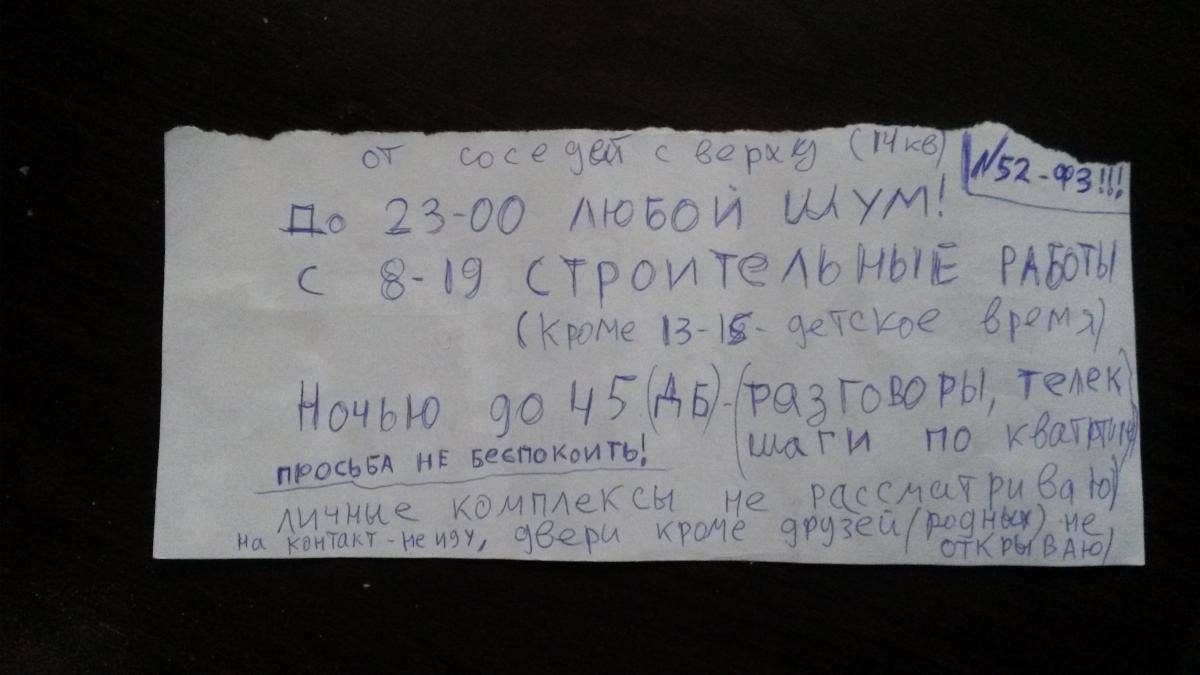 от соседей с верху (14кв)
N52-ФЗ!!!
До 23-00 ЛЮБОЙ ШУМ!
С 8-19 СТРОИТЕЛЬНЫЕ РАБОТЫ
(Кроме 13-15- детское время)
Ночью до 45 (ДБ)-(РАЗГОВОРЫ, телек
шаги по кватртире)
ПРОСЬБА НЕ БЕСПОКОИТЬ!
личные комплексы не рассматриваю)
на контакт-не иду, двери кроме друзей (родных) не
ОТКРЫВАЮ)